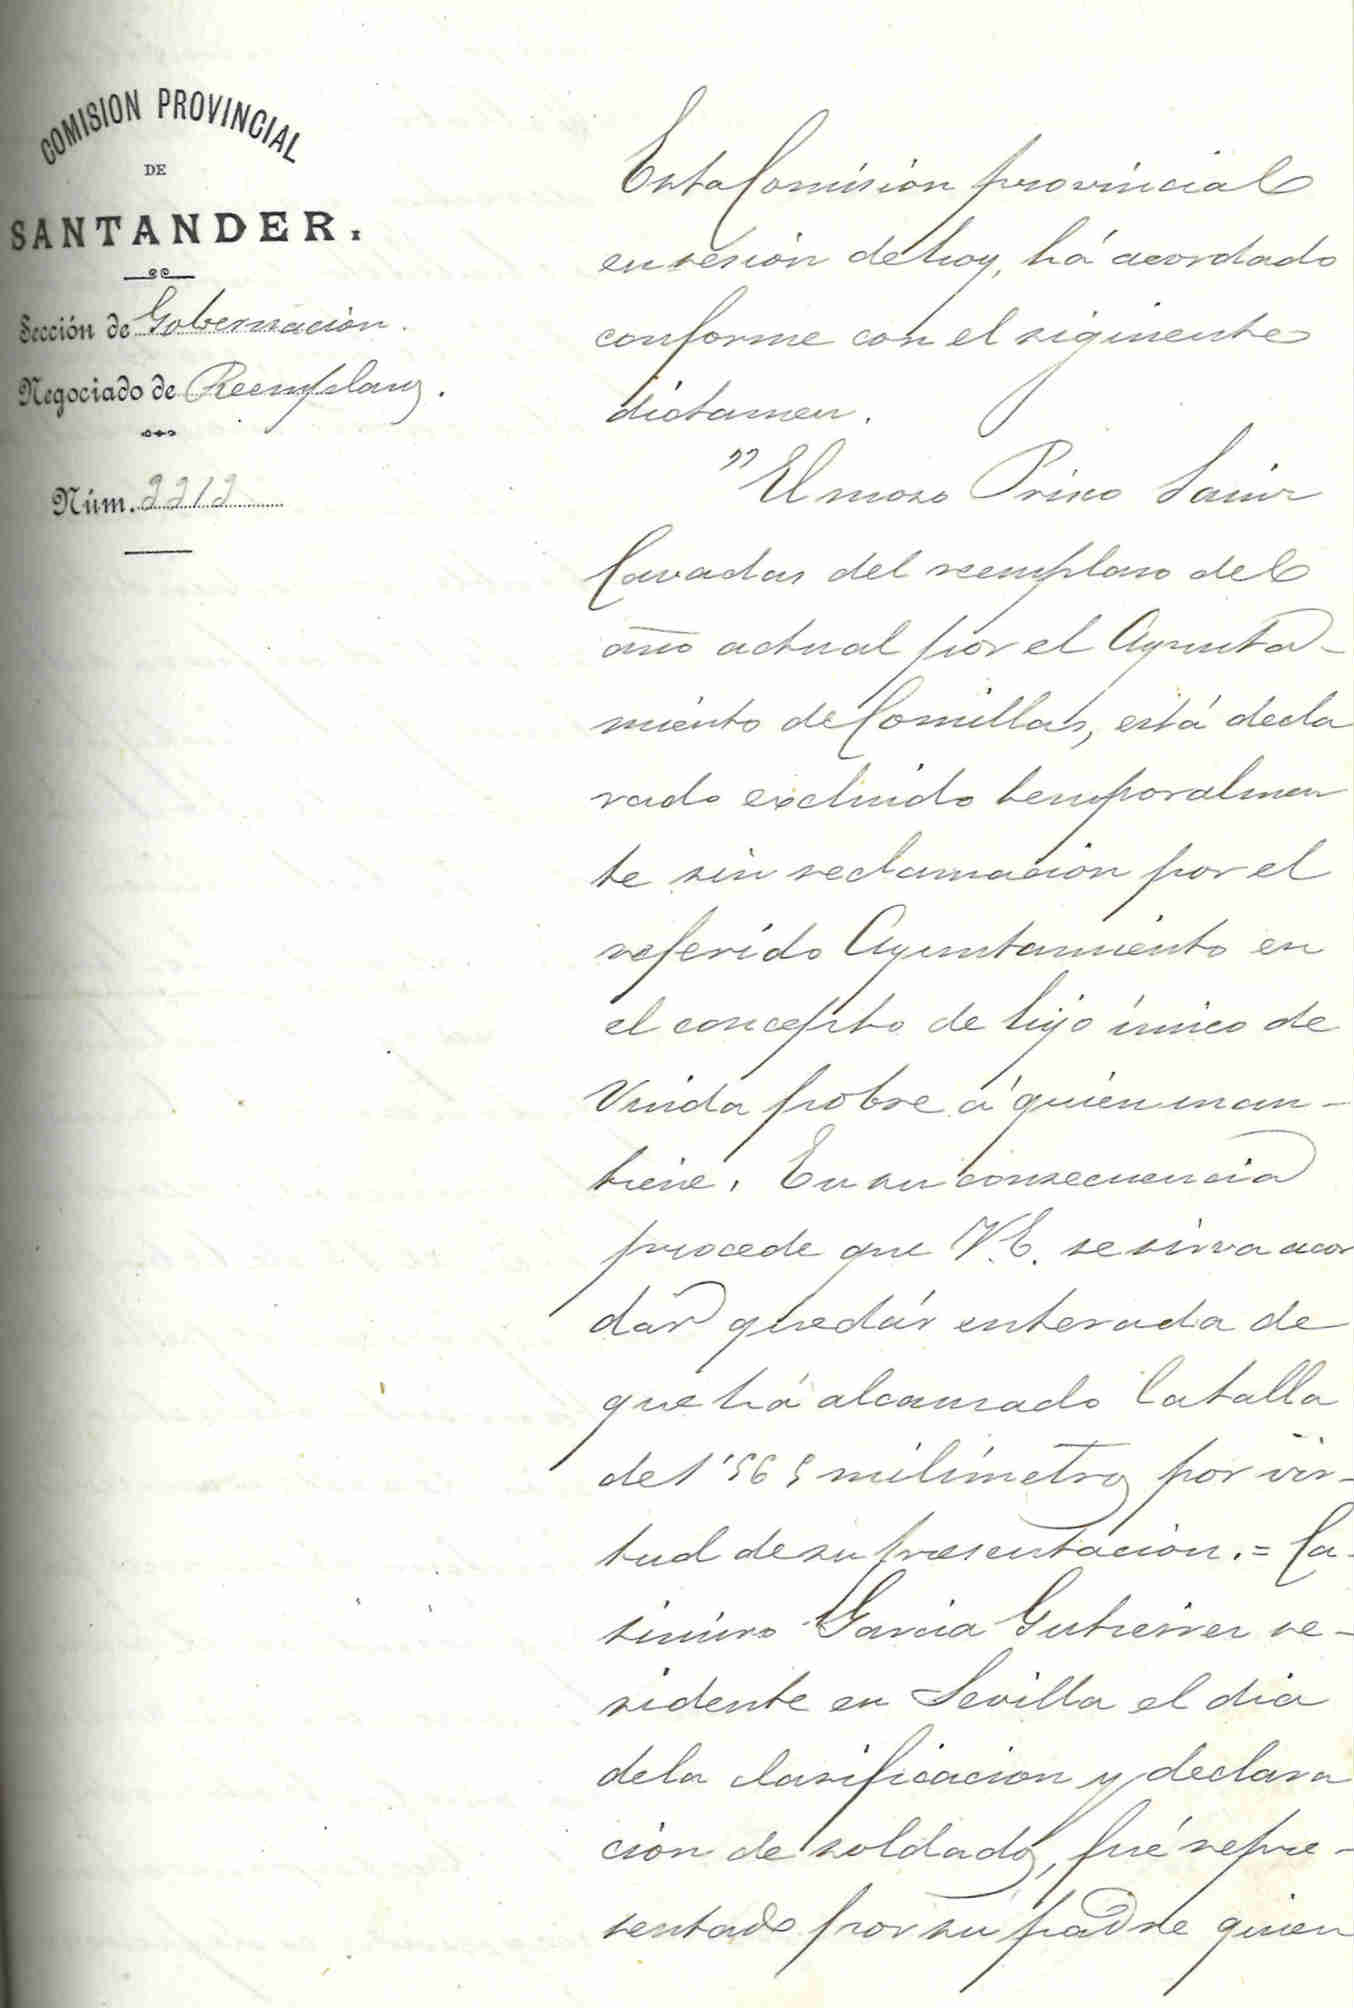 COMISION PROVINCIAL
DE
SANTANDER.
Sección de Gobernación.
Negociado de Reemplazos.
Núm. 2212
Esta Comisión provincial
en sesión de hoy, há acordado
conforme con el siguiente
dictamen.
"El mozo Sainz
Cavadas del reemplazo del
año actual por el Ayunta-
miento de Comillas, está decla
rado excluido temporalmen
te sin reclamación por el
referido Ayuntamiento en
el concepto de hijo único de
Viuda pobre á quién man-
tiene. En su consecuencia
procede que V.E. se sirva acor
dár quedár enterada de
que há alcanzado la talla
de 1'565 milímetros por vir-
tud de su presentación.= Ca-
simiro Garcia Gutierrez re-
sidente en Sevilla el dia
de la clasificacion y declara
ción de soldados, fué repre-
sentado por su padre quien